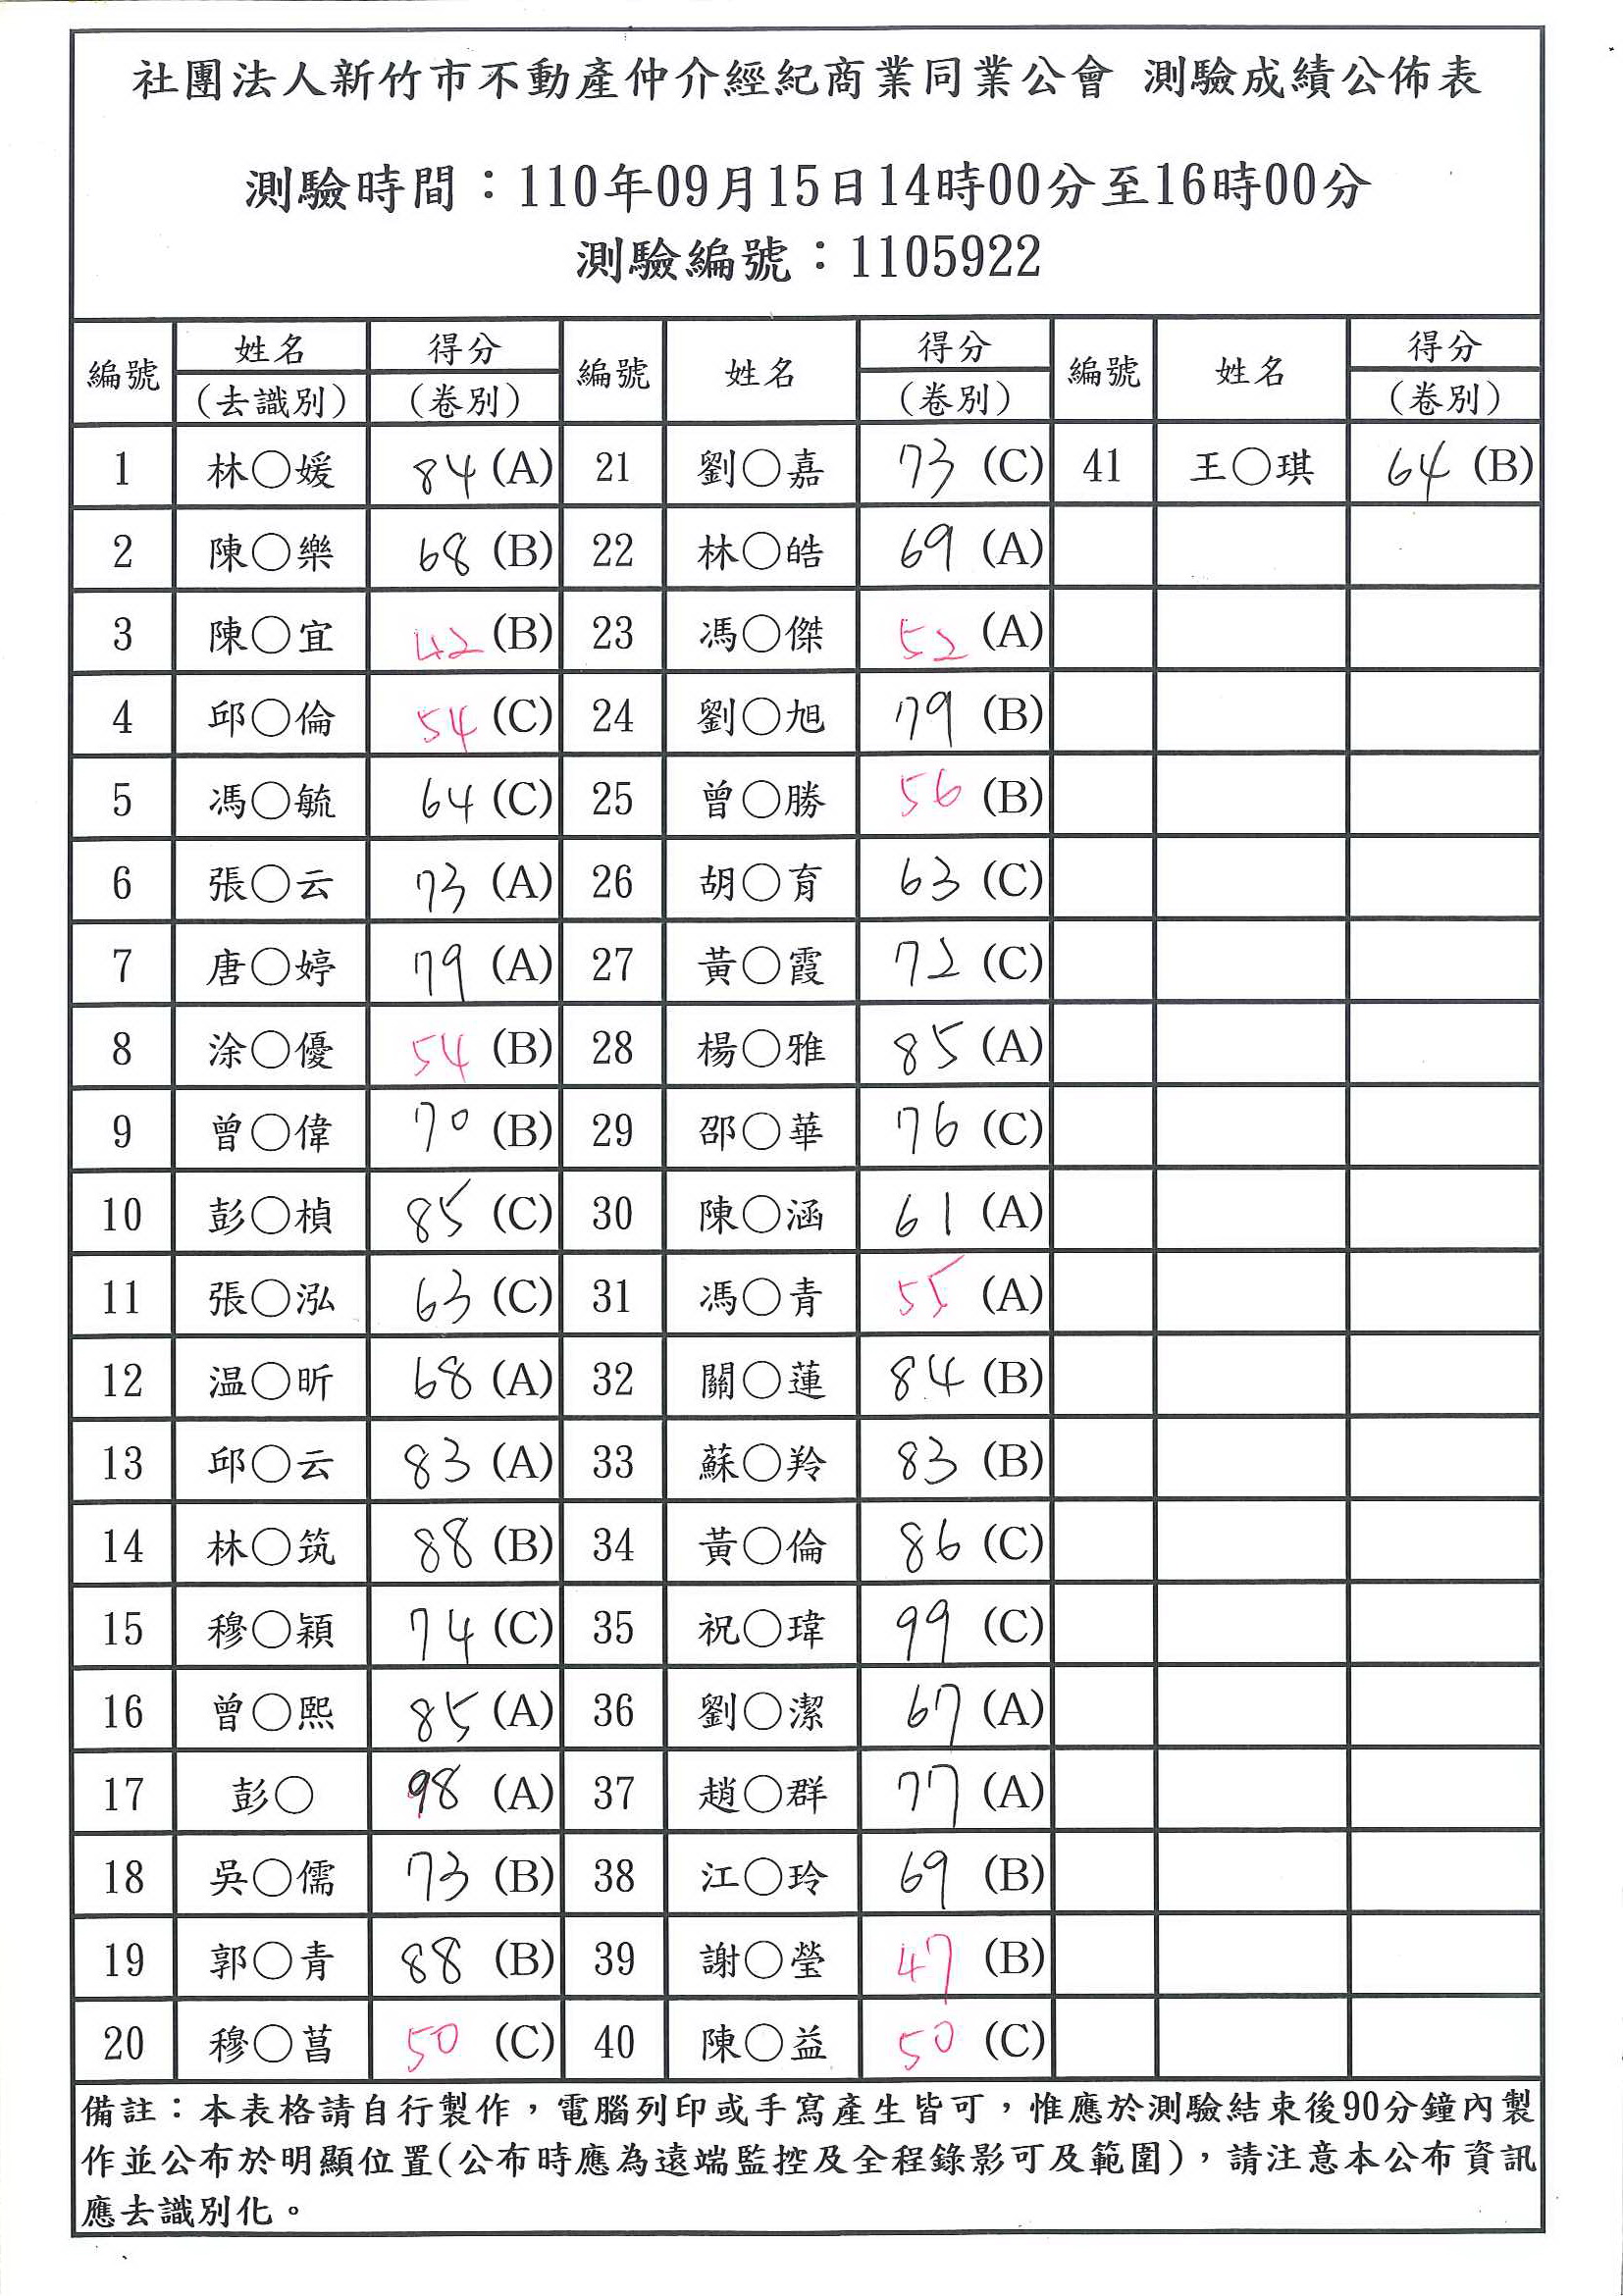 社團法人新竹市不動產仲介經紀商業同業公會 測驗成績公佈表
測驗時間：110年09月15日14時00分至16時00分
測驗編號：1105922
編號 姓名 (去識別) 得分 (卷別) 編號 姓名 得分 (卷別) 編號 姓名 得分 (卷別)
1 林○媛 84 (A) 21 劉○嘉 73 (C) 41 王○琪 64 (B)
2 陳○樂 68 (B) 22 林○皓 69 (A)
3 陳○宜 42 (B) 23 馮○傑 52 (A)
4 邱○倫 54 (C) 24 劉○旭 79 (B)
5 馮○毓 64 (C) 25 曾○勝 56 (B)
6 張○云 73 (A) 26 胡○育 63 (C)
7 唐○婷 79 (A) 27 黃○霞 72 (C)
8 涂○優 54 (B) 28 楊○雅 85 (A)
9 曾○偉 70 (B) 29 邵○華 76 (C)
10 彭○楨 85 (C) 30 陳○涵 61 (A)
11 張○泓 63 (C) 31 馮○青 55 (A)
12 温○昕 68 (A) 32 關○蓮 84 (B)
13 邱○云 83 (A) 33 蘇○羚 83 (B)
14 林○筑 88 (B) 34 黃○倫 86 (C)
15 穆○穎 74 (C) 35 祝○瑋 99 (C)
16 曾○熙 85 (A) 36 劉○潔 67 (A)
17 彭○ 98 (A) 37 趙○群 77 (A)
18 吳○儒 73 (B) 38 江○玲 69 (B)
19 郭○青 88 (B) 39 謝○瑩 47 (B)
20 穆○菖 50 (C) 40 陳○益 50 (C)
備註：本表格請自行製作，電腦列印或手寫產生皆可，惟應於測驗結束後90分鐘內製
作並公布於明顯位置(公布時應為遠端監控及全程錄影可及範圍)，請注意本公布資訊
應去識別化。